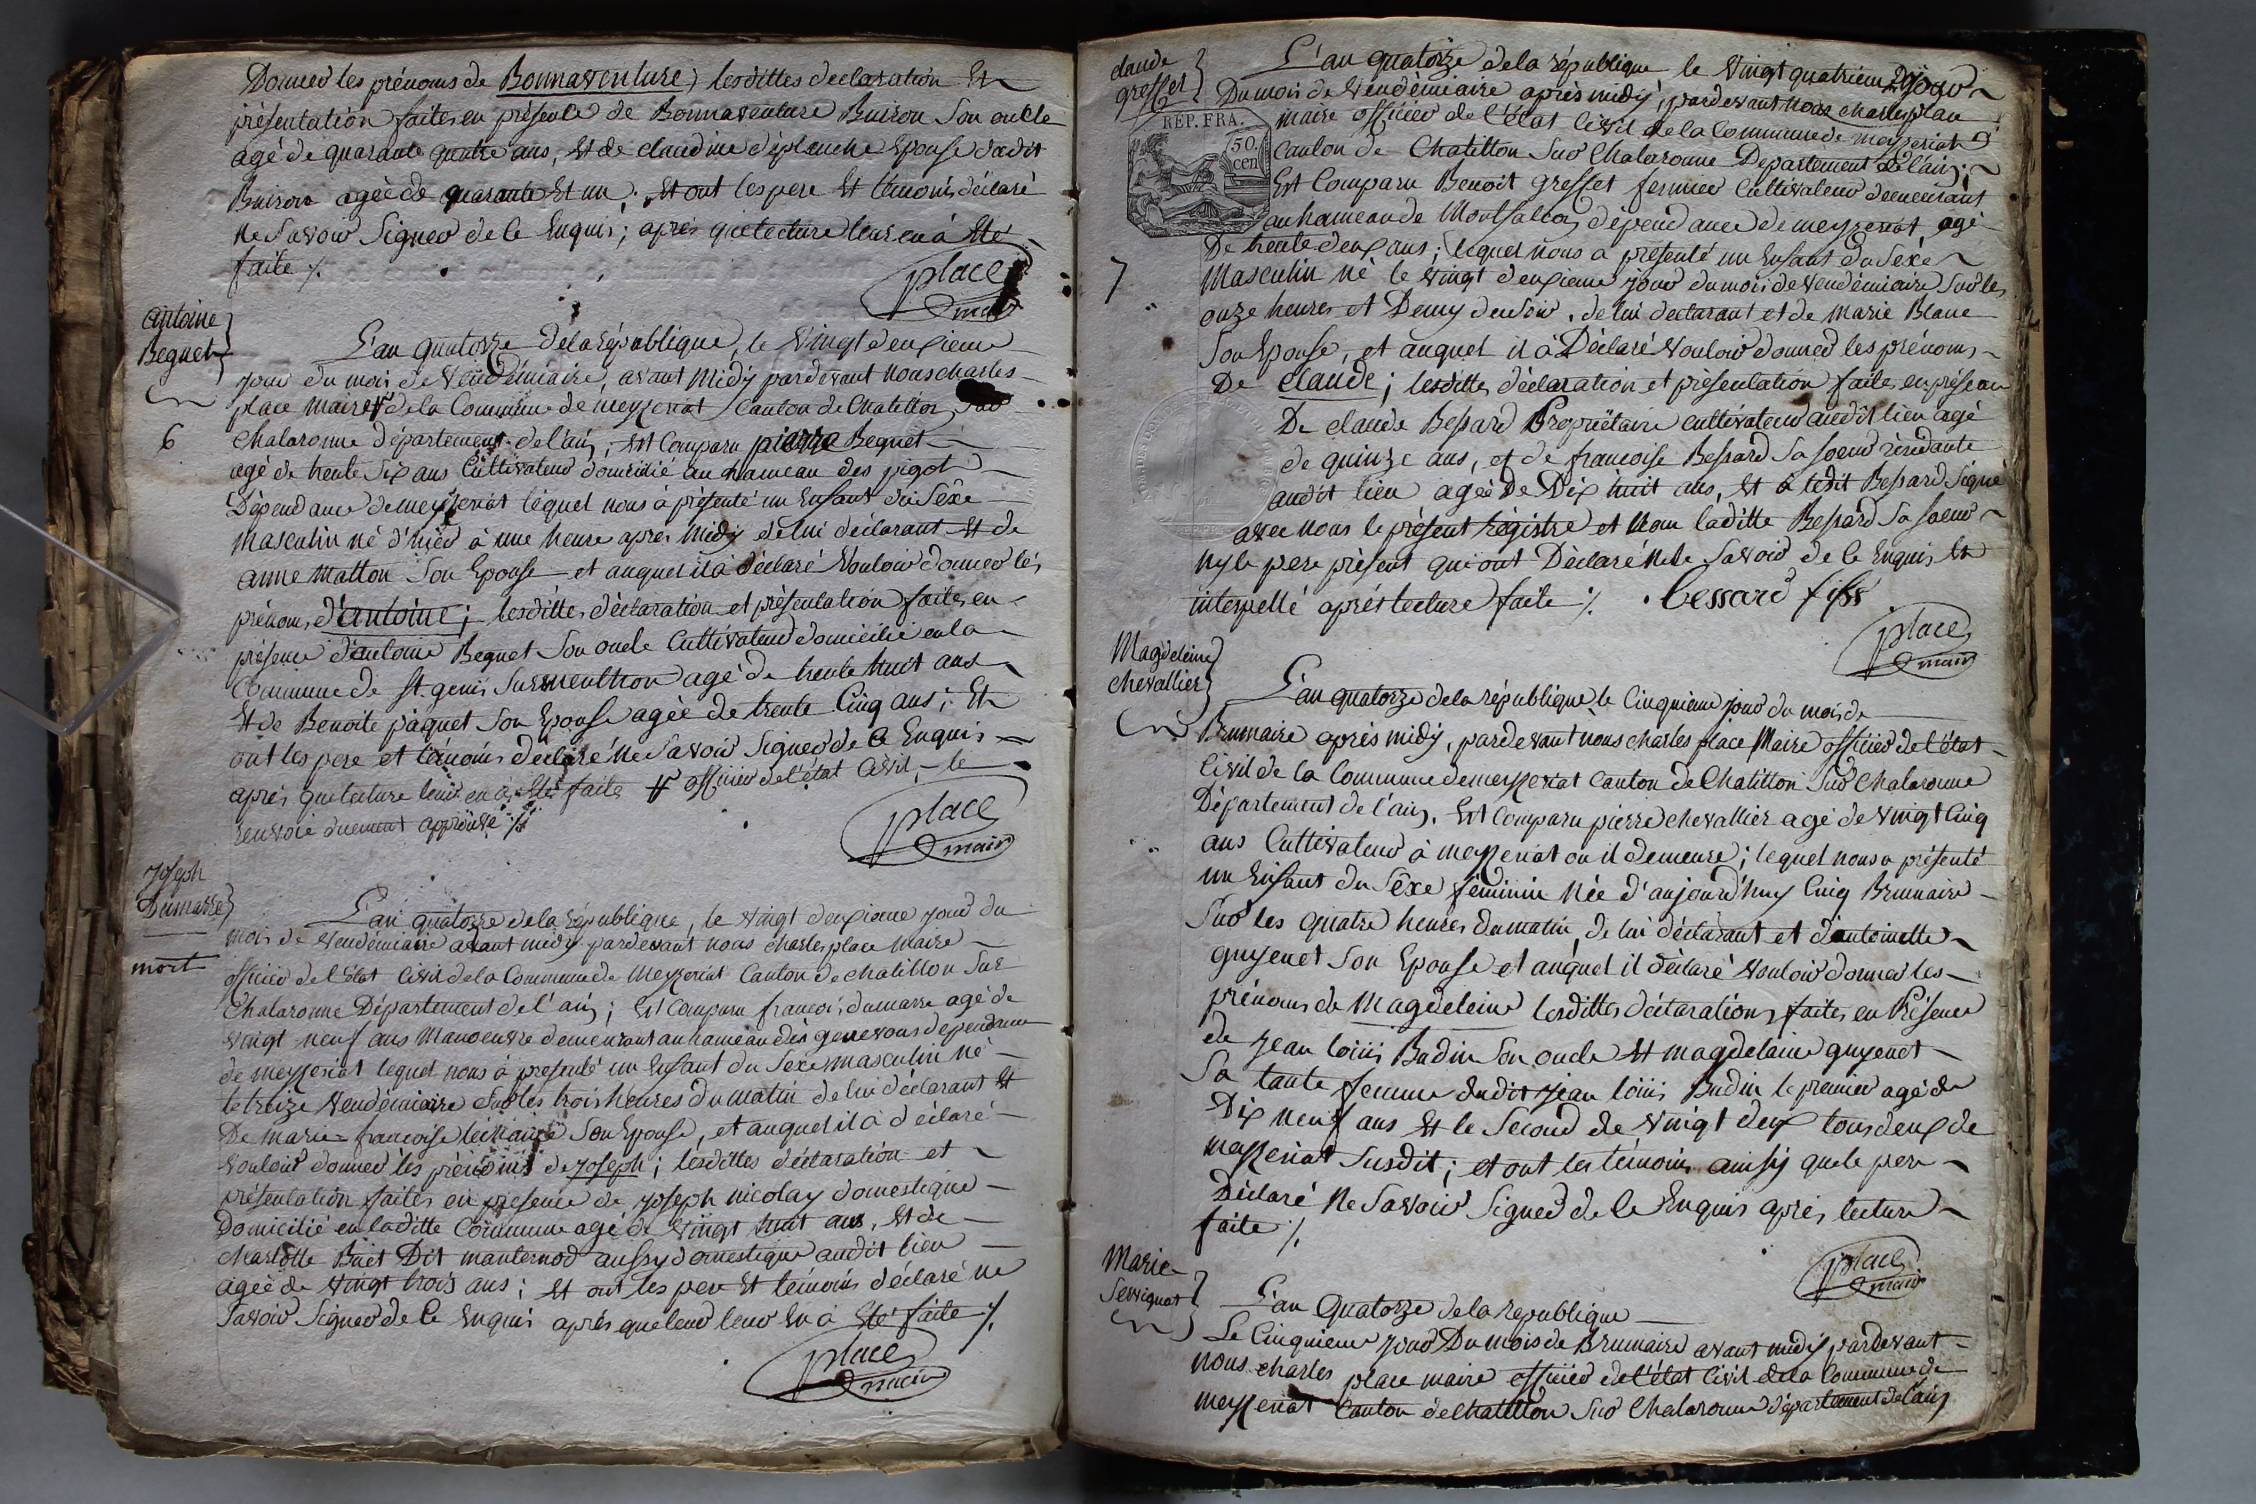 Donner les prénoms de Bonnaventure; lesdittes declaration Et
présentation faites en présence de Bonnaventure Buiron Son oncle
agé de quarante quatre ans, Et de claudine déplanche Epouse dudit
Buiron agée de quarante Et un; Et ont les pere Et témoins déclaré
Ne Savoir Signer de ce Enquis; après que lecture leur en à Eté
faite ⁒
place
maire
antoine
Beguet
6
L'an quatorze de la république, le Vingt deuxieme
jour du mois de Vendémiaire, avant Midy pardevant nous charles
place maire de la Commune de meyzeriat Canton de Chatillon Sur
Chalaronne département de l'ain, Est Comparu pierre Beguet
agé de trente Six ans Cultivateur domicilié au hameau des pigot
Dépendance de meyzeriat lequel nous à présenté un Enfant du Sèxe
masculin né d'hier à une heure apres Midy de lui déclarant Et de
anne Matton Son Epouse et auquel il à déclaré Vouloir donner les
prénoms d'antoine; lesdittes déclaration et présentation faites en
présence d'antoine Beguet Son oncle Cultivateur domicilié en la
Commune de st. genis Surmenthon agé de trente huit ans
Et de Benoite paquet Son Epouse agée de trente Cinq ans; Et
ont les pere et témoins déclaré Ne Savoir Signer de ce Enquis
après que lecture leur en à Eté faite # officier de l'état Civil, le
renvoie duement approuvé ⁒
place
maire
joseph
Dumarre
mort
L'an quatorze de la république, le Vingt deuxieme jour du
mois de Vendémiaire avant midy pardevant nous charles place Maire
officier de l'état Civil de la Commune de Meyzeriat Canton de chatillon Sur
Chalaronne Département de l'ain; Est Comparu francois dumarre agé de
Vingt neuf ans Manoeuvre demeurant au hameau des genevous dependance
de meyzeriat lequel nous à presenté un Enfant du Sexe masculin né
le treize Vendémiaire Sur les trois heures du matin de lui déclarant Et
De marie francoise Son Epouse, et auquel il à déclaré
Vouloir donner les prénoms de joseph; lesdittes déclaration et
présentation faites en presence de joseph nicolay domestique
Domicilié en laditte Commune agé de Vingt huit ans, Et de
Charlotte Buet Dit manternod aussy domestique audit lieu
agée de Vingt trois ans; Et ont les pere Et témoins déclaré ne
Savoir Signer de ce Enquis après que leur En à Eté faite ⁒
place
maire
claude
gresset
7
REP. FRA.
50.
cen
L'an quatorze de la république le Vingt quatrieme jour
Du mois de Vendémiaire après midy, pardevant nous charles place
maire officier de l'état Civil de la Commune de meyzeriat
Canton de Chatillon Sur Chalaronne Departement de l'ain;
Est Comparu Benoit gresset fermier Cultivateur demeurant
au hameau de Montfalcon dépendance de meyzeriat agé
De trente deux ans; lequel nous a présenté un Enfant du Sèxe
Masculin né le Vingt deuxieme jour du mois de Vendémiaire Sur les
onze heures et Demy du Soir, de lui declarant et de Marie Blanc
Son Epouse, et auquel il à Déclaré Vouloir donner les prénoms
De claude; lesdittes déclaration et présentation faites en présence
De claude Bessard Propriétaire cultivateur audit lieu agé
de quinze ans, et de francoise Bessard Sa soeur residante
audit lieu agée De Dix huit ans, Et à ledit Bessard Signé
avec nous le présent Régistre et Non laditte Bessard Sa soeur
ny le pere présent qui ont Déclaré Ne le Savoir de ce Enquis Et
interpellé après lecture faite ⁒ Bessard fils
place
maire
Magdeleine
chevallier
L'an quatorze de la république le Cinquieme jour du mois de
Brumaire après midy, pardevant nous charles place Maire officier de l'état
Civil de la Commune de meyzeriat Canton de Chatillon Sur Chalaronne
Département de l'ain, Est Comparu pierre chevallier agé de Vingt Cinq
ans Cultivateur à meyzeriat ou il demeure; lequel nous a présenté
un Enfant du Sèxe féminin Née d'aujourd'huy Cinq Brumaire
Sur les quatre heures du matin, de lui déclarant et d'antoinette
guyenet Son Epouse et auquel il déclaré Vouloir donner les
prénoms de Magdeleine lesdittes déclarations faites en Présence
de jean louis Badin Son oncle Et magdelaine guyenet
Sa tante femme dudit jean louis Badin le premier agé de
Dix neuf ans Et le Second de Vingt deux tous deux de
mayzeriat Susdit; et ont les témoins ainsy que le pere
Déclaré Ne Savoir Signer de ce Enquis après lecture
faite ⁒
place
maire
Marie
Servignat
L'an Quatorze de la republique
Le Cinquieme jour Du mois de Brumaire avant midy pardevant
nous charles place maire officier de l'état Civil de la Commune de
meyzeriat Canton de Chatillon Sur Chalaronne département de l'ain